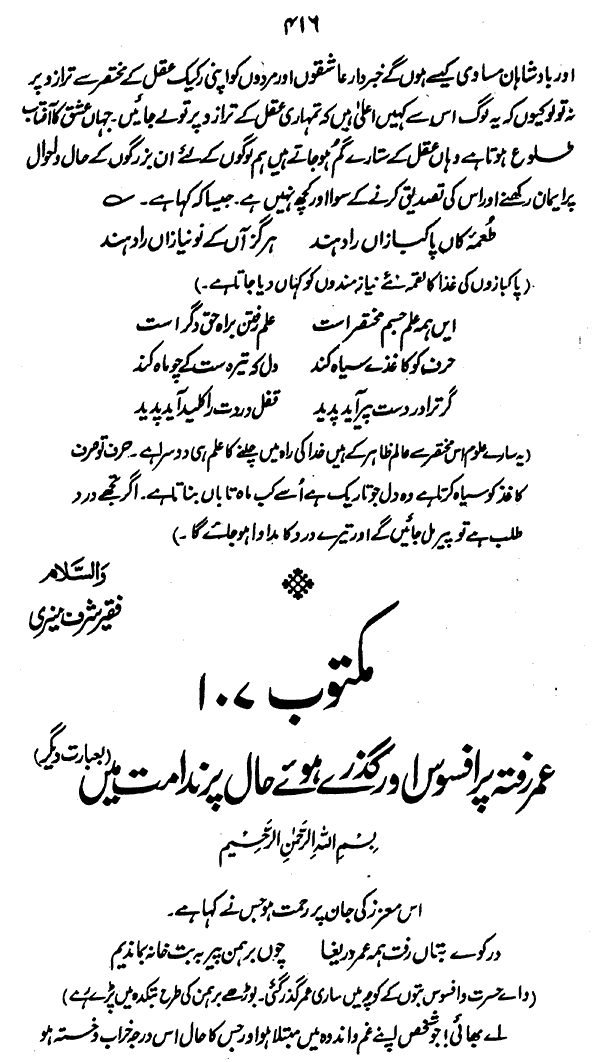 ۴۱۶
اور بادشاہان مساوی کیسے ہوں گے خبردار عاشقوں اور مردوں کو اپنی رکیک عقل کے مختصر سے ترازو پر
نہ تولو کیوں کہ یہ لوگ اس سے کہیں اعلیٰ ہیں کہ تمہاری عقل کے ترازو پر تولے جائیں۔ جہاں عشق کا آفتاب
طلوع ہوتا ہے وہاں عقل کے ستارے گم ہو جاتے ہیں ہم لوگوں کے لئے ان بزرگوں کے حال و احوال
پر ایمان رکھنے اور اس کی تصدیق کرنے کے سوا اور کچھ نہیں ہے۔ جیسا کہ کہا ہے۔ ؎
طعمۂ کاں پاکبازاں را دہند ہرگز آں کے نو نیازاں را دہند
(پاکبازوں کی غذا کا لقمہ نئے نیازمندوں کو کہاں دیا جاتا ہے۔)
ایں ہمہ علم جسم مختصر است علم رفتن براہ حق دگر است
حرف کو کاغذے سیاہ کند دل کہ تیرہ ست کے چو ماہ کند
گر ترا درد ست پیر آید پدید قفل دردت را کلید آید پدید
(یہ سارے علوم اس مختصر سے عالم ظاہر کے ہیں خدا کی راہ میں چلنے کا علم ہی دوسرا ہے۔ حرف تو حرف
کاغذ کو سیاہ کرتا ہے وہ دل جو تاریک ہے اُسے کب ماہ تاباں بناتا ہے۔ اگر تجھے درد
طلب ہے تو پیر مل جائیں گے اور تیرے درد کا مداوا ہو جائے گا۔)
والسلام
فقیر شرف منیری
مکتوب ۱۰۷
عمر رفتہ پر افسوس اور گذرے ہوئے حال پر ندامت میں (بعبارت دیگر)
بِسْمِ اللّٰہِ الرَّحْمٰنِ الرَّحِیْمِ
اس معزز کی جان پر رحمت ہو جس نے کہا ہے۔
در کوے بتاں رفت ہمہ عمر دریغا چوں برہمن پیر بہ بت خانہ بماندیم
(وائے حسرت و افسوس بتوں کے کوچہ میں ساری عمر گذر گئی۔ بوڑھے برہمن کی طرح بتکدہ میں پڑے رہے)
اے بھائی! جو شخص اپنے غم و اندوہ میں مبتلا ہو اور جس کا حال اس درجہ خراب و خستہ ہو